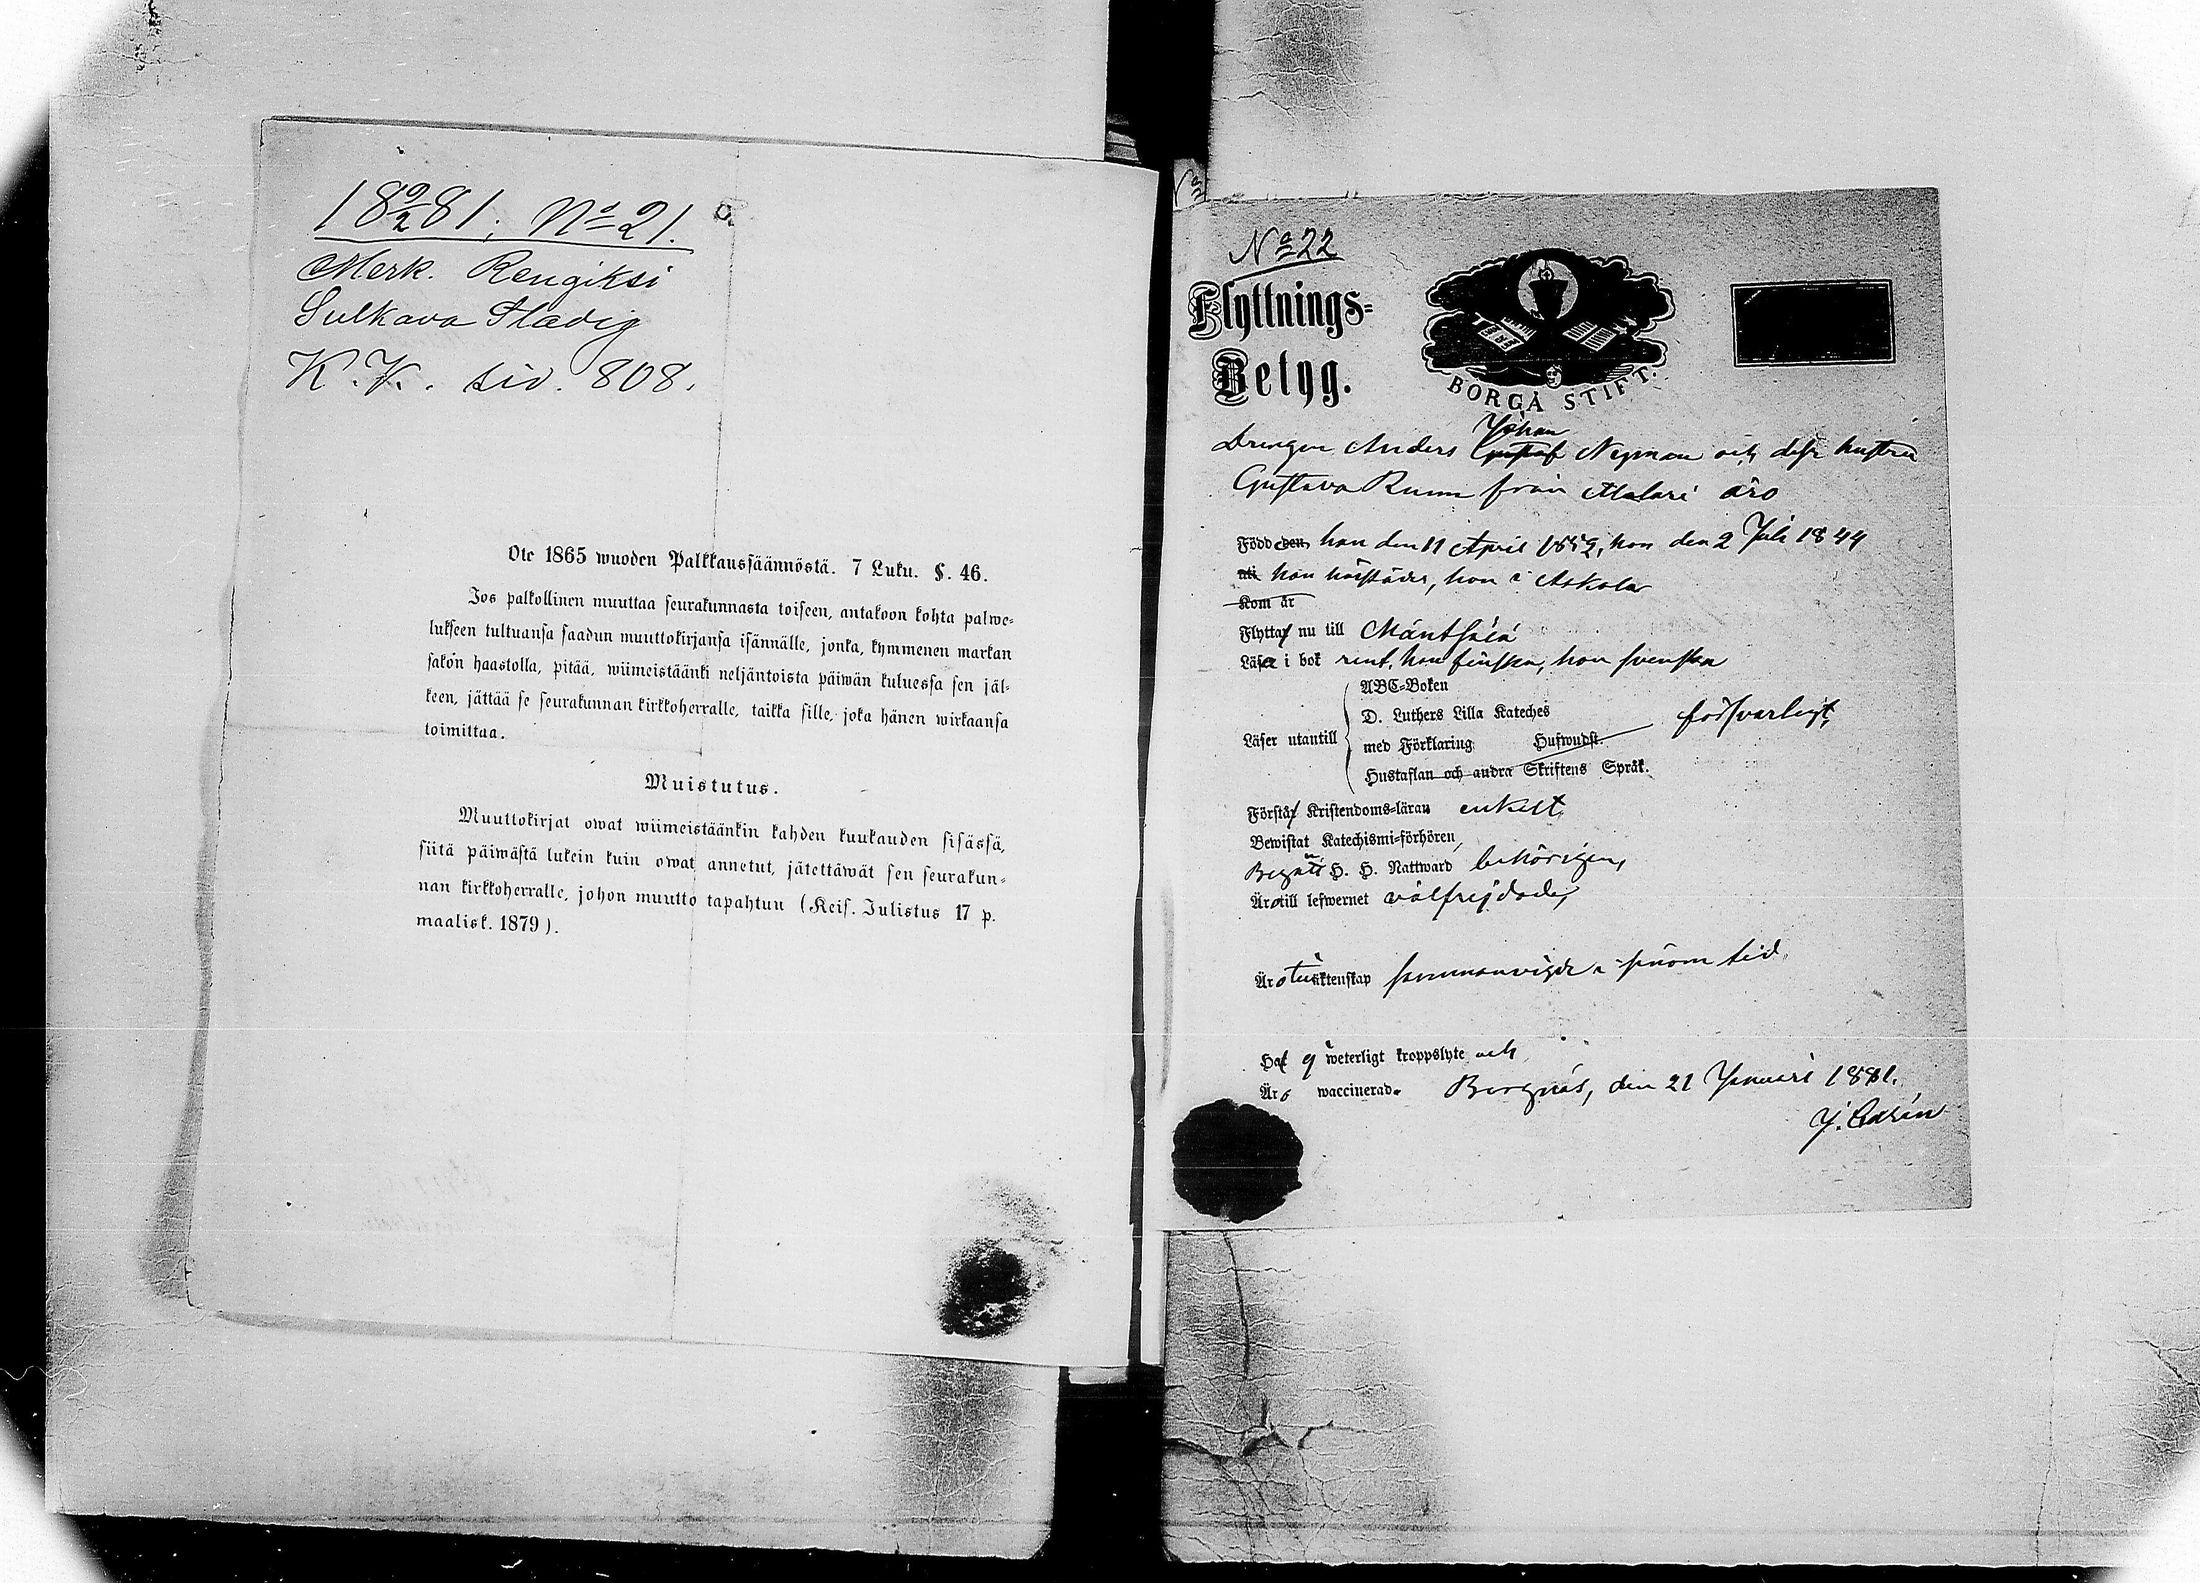 18 9/2 81; No 21.
Merk. Rengiksi
Sulkava
K.K. sid. 808.
Ote 1865 wuoden Palkkaussäännöstä. 7 Luku. §. 46.
Jos palkollinen muuttaa seurakunnasta toiseen, antakoon kohta palwe-
lukseen tultuansa saadun muuttokirjansa isännälle, jonka, kymmenen markan
sakon haastolla, pitää, wiimeistäänki neljäntoista päiwän kuluessa sen jäl-
keen, jättää se seurakunnan kirkkoherralle, taikka sille, joka hänen wirkaansa
toimittaa.
Muistutus.
Muuttokirjat owat wiimeistäänkin kahden kuukauden sisässä,
siitä päiwästä lukein kuin owat annetut, jätettäwät sen seurakun-
nan kirkkoherralle, johon muutto tapahtuu (Keis. Julistus 17 p.
maalisk. 1879).
No 22
Flyttnings-
Betyg.
BORGÅ STIFT.
Johan
Drengen Anders Gustaf Nyman och dess hustru
Gustava från äro
Född den han den 11 April 1852, hon den 2 Juli 1844
uti han härstädes, hon i Askola
Kom är
Flytta nu till Mäntsälä
Läser i bok rent, han finska, hon svenska
ABC-Boken
D. Luthers Lilla Kateches
Läser utantill med Förklaring Hufwudst. försvarligt,
Hustaflan och andra Skriftens Språk.
Förstår Kristendoms-läran enkelt,
Bewistat Katechismi-förhören,
Begått H. H. Nattward behörigen,
Äro till lefwernet välfrejdade,
Äro i äktenskap sammanvigde i sinom tid.
Ha ej weterligt kroppslyte och
Äro waccinerade. den 21 Januari 1881.